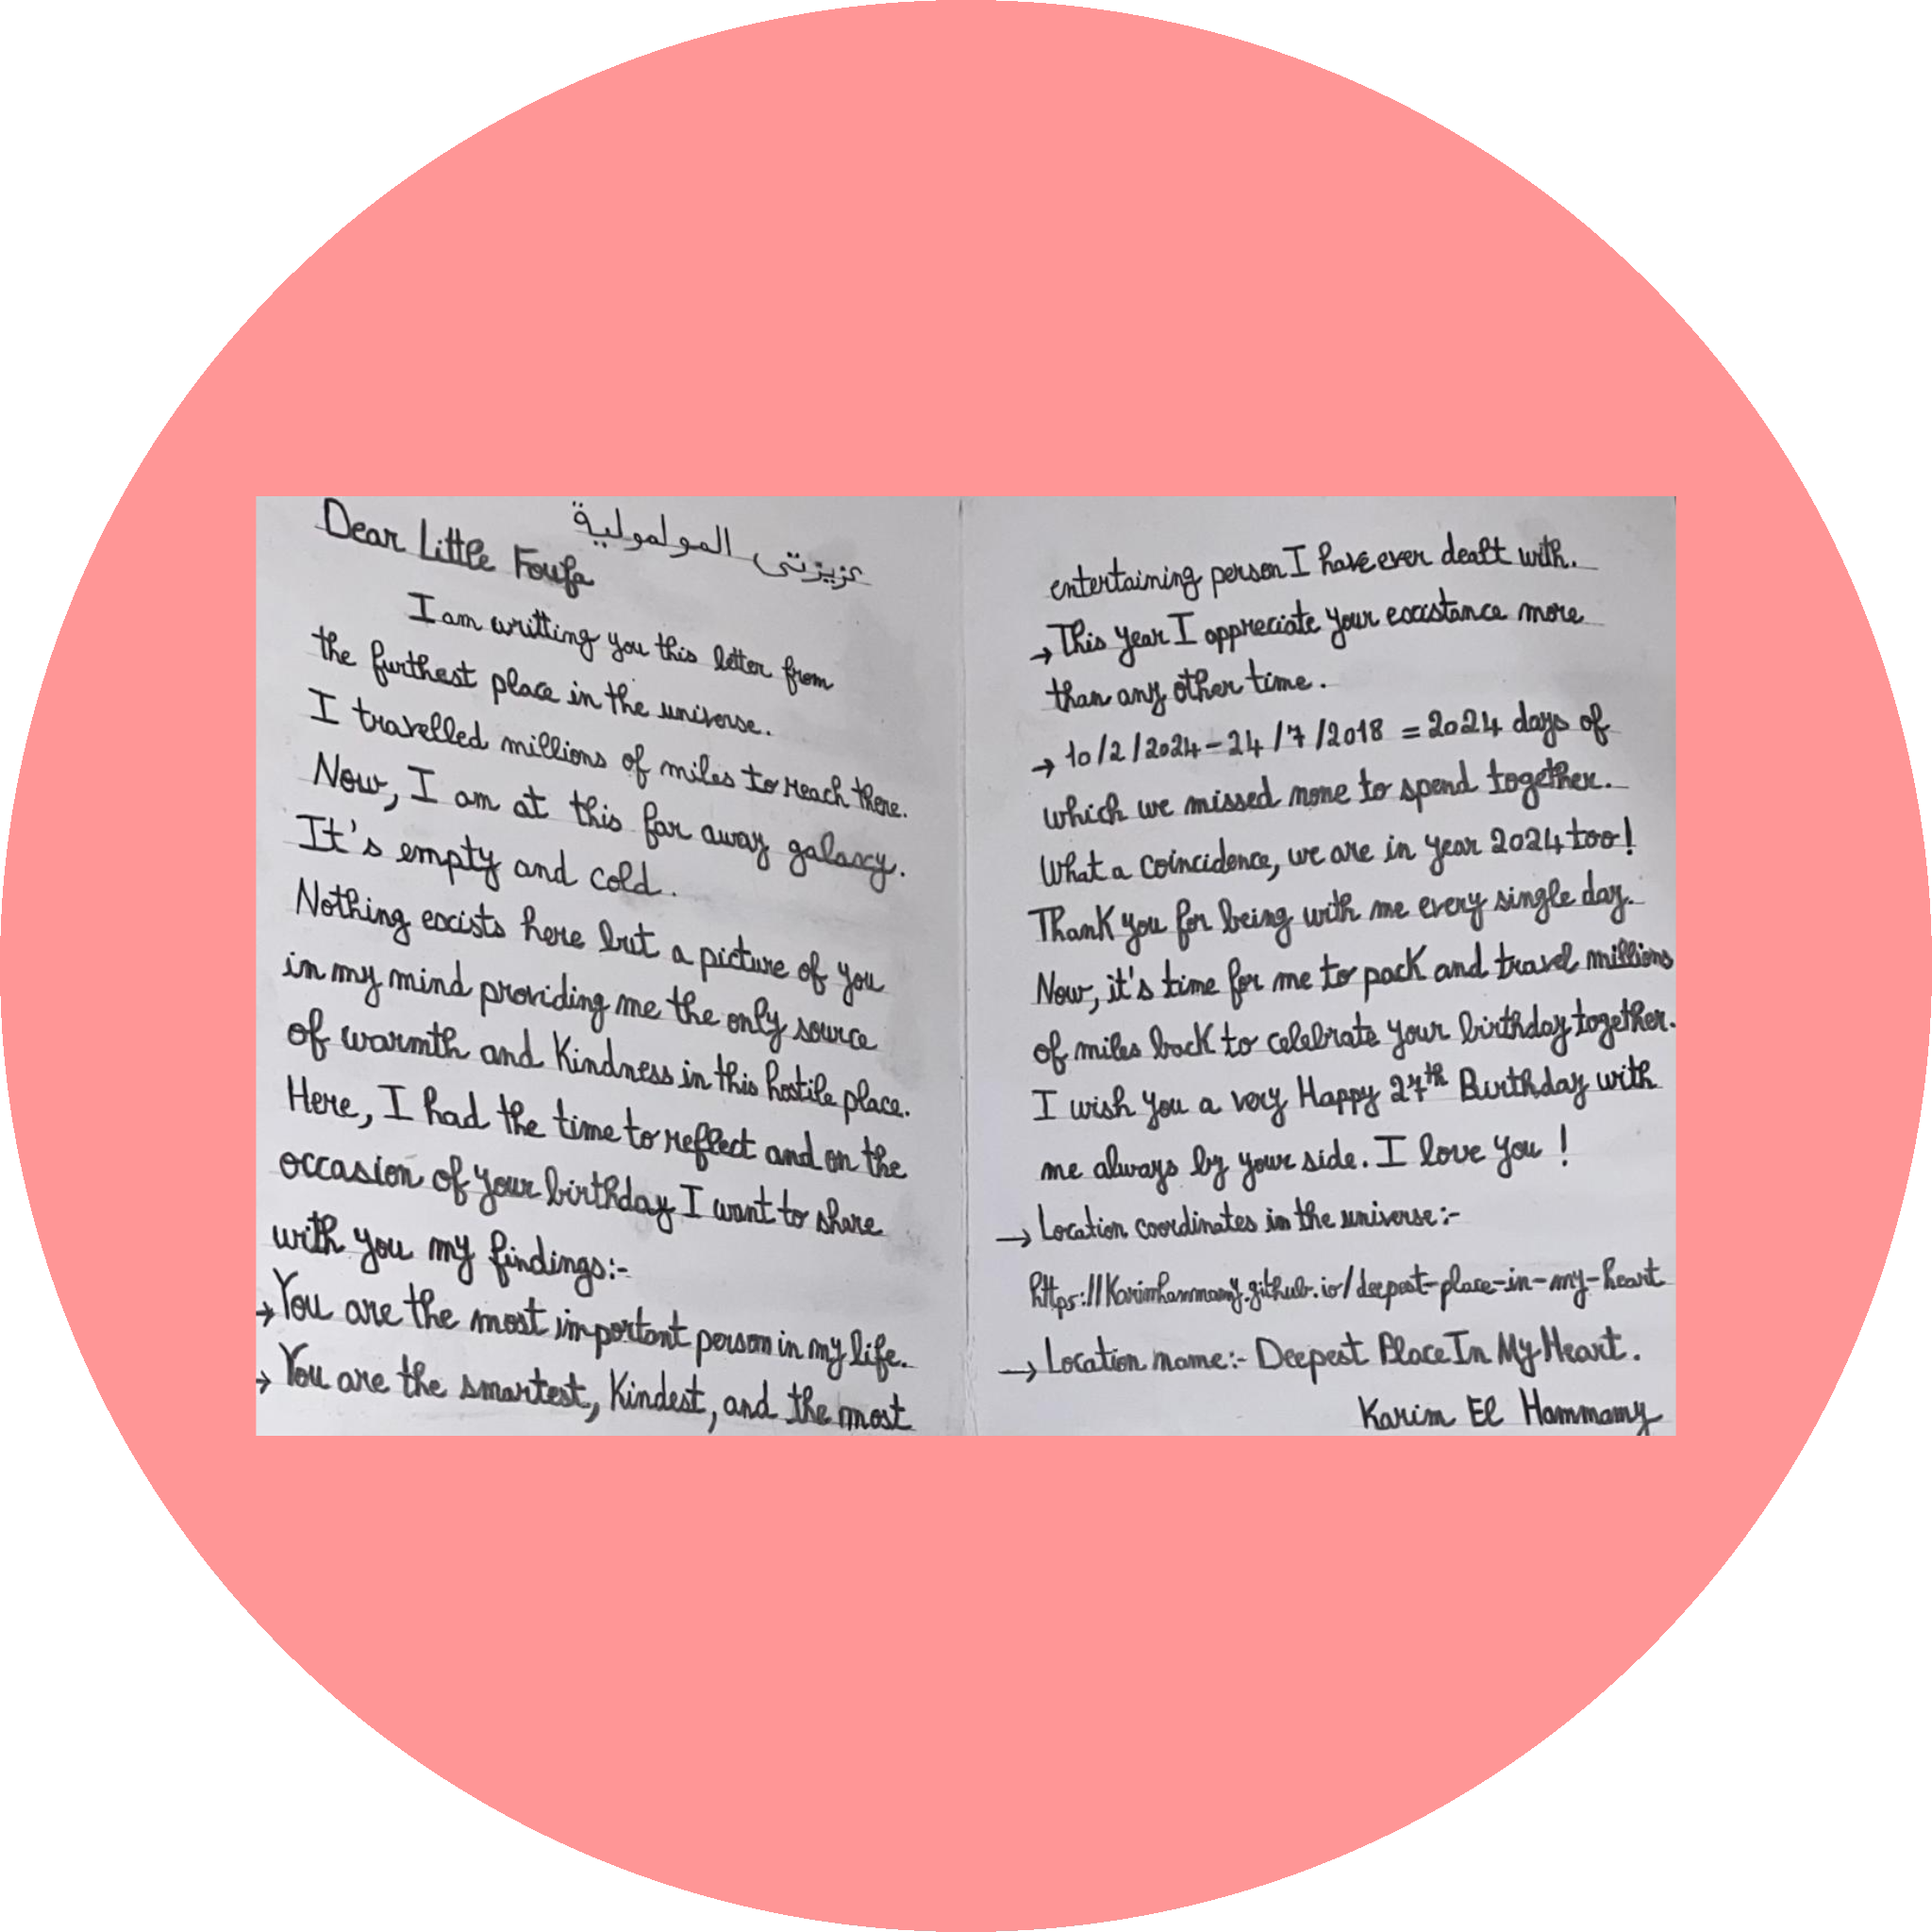 Dear Little Foufa
عزيزتى المولمولية
I am writting you this letter from
the furthest place in the universe.
I travelled millions of miles to reach there.
Now, I am at this far away galaxy.
It's empty and cold.
Nothing excists here but a picture of you
in my mind providing me the only source
of warmth and Kindness in this hostile place.
Here, I had the time to reflect and on the
occasion of your birthday I want to share
with you my findings:-
→ You are the most important person in my life.
→ You are the smartest, Kindest, and the most
entertaining person I have ever dealt with.
→ This year I appreciate your excistance more
than any other time.
→ 10/2/2024 - 24/7/2018 = 2024 days of
which we missed none to spend together.
What a coincidence, we are in year 2024 too!
Thank you for being with me every single day.
Now, it's time for me to pack and travel millions
of miles back to celebrate your birthday together.
I wish you a very Happy 27th Birthday with
me always by your side. I love you!
→ Location coordinates in the universe:-
https://Karimhammamy.github.io/deepest-place-in-my-heart
→ Location name:- Deepest Place In My Heart.
Karim El Hammamy